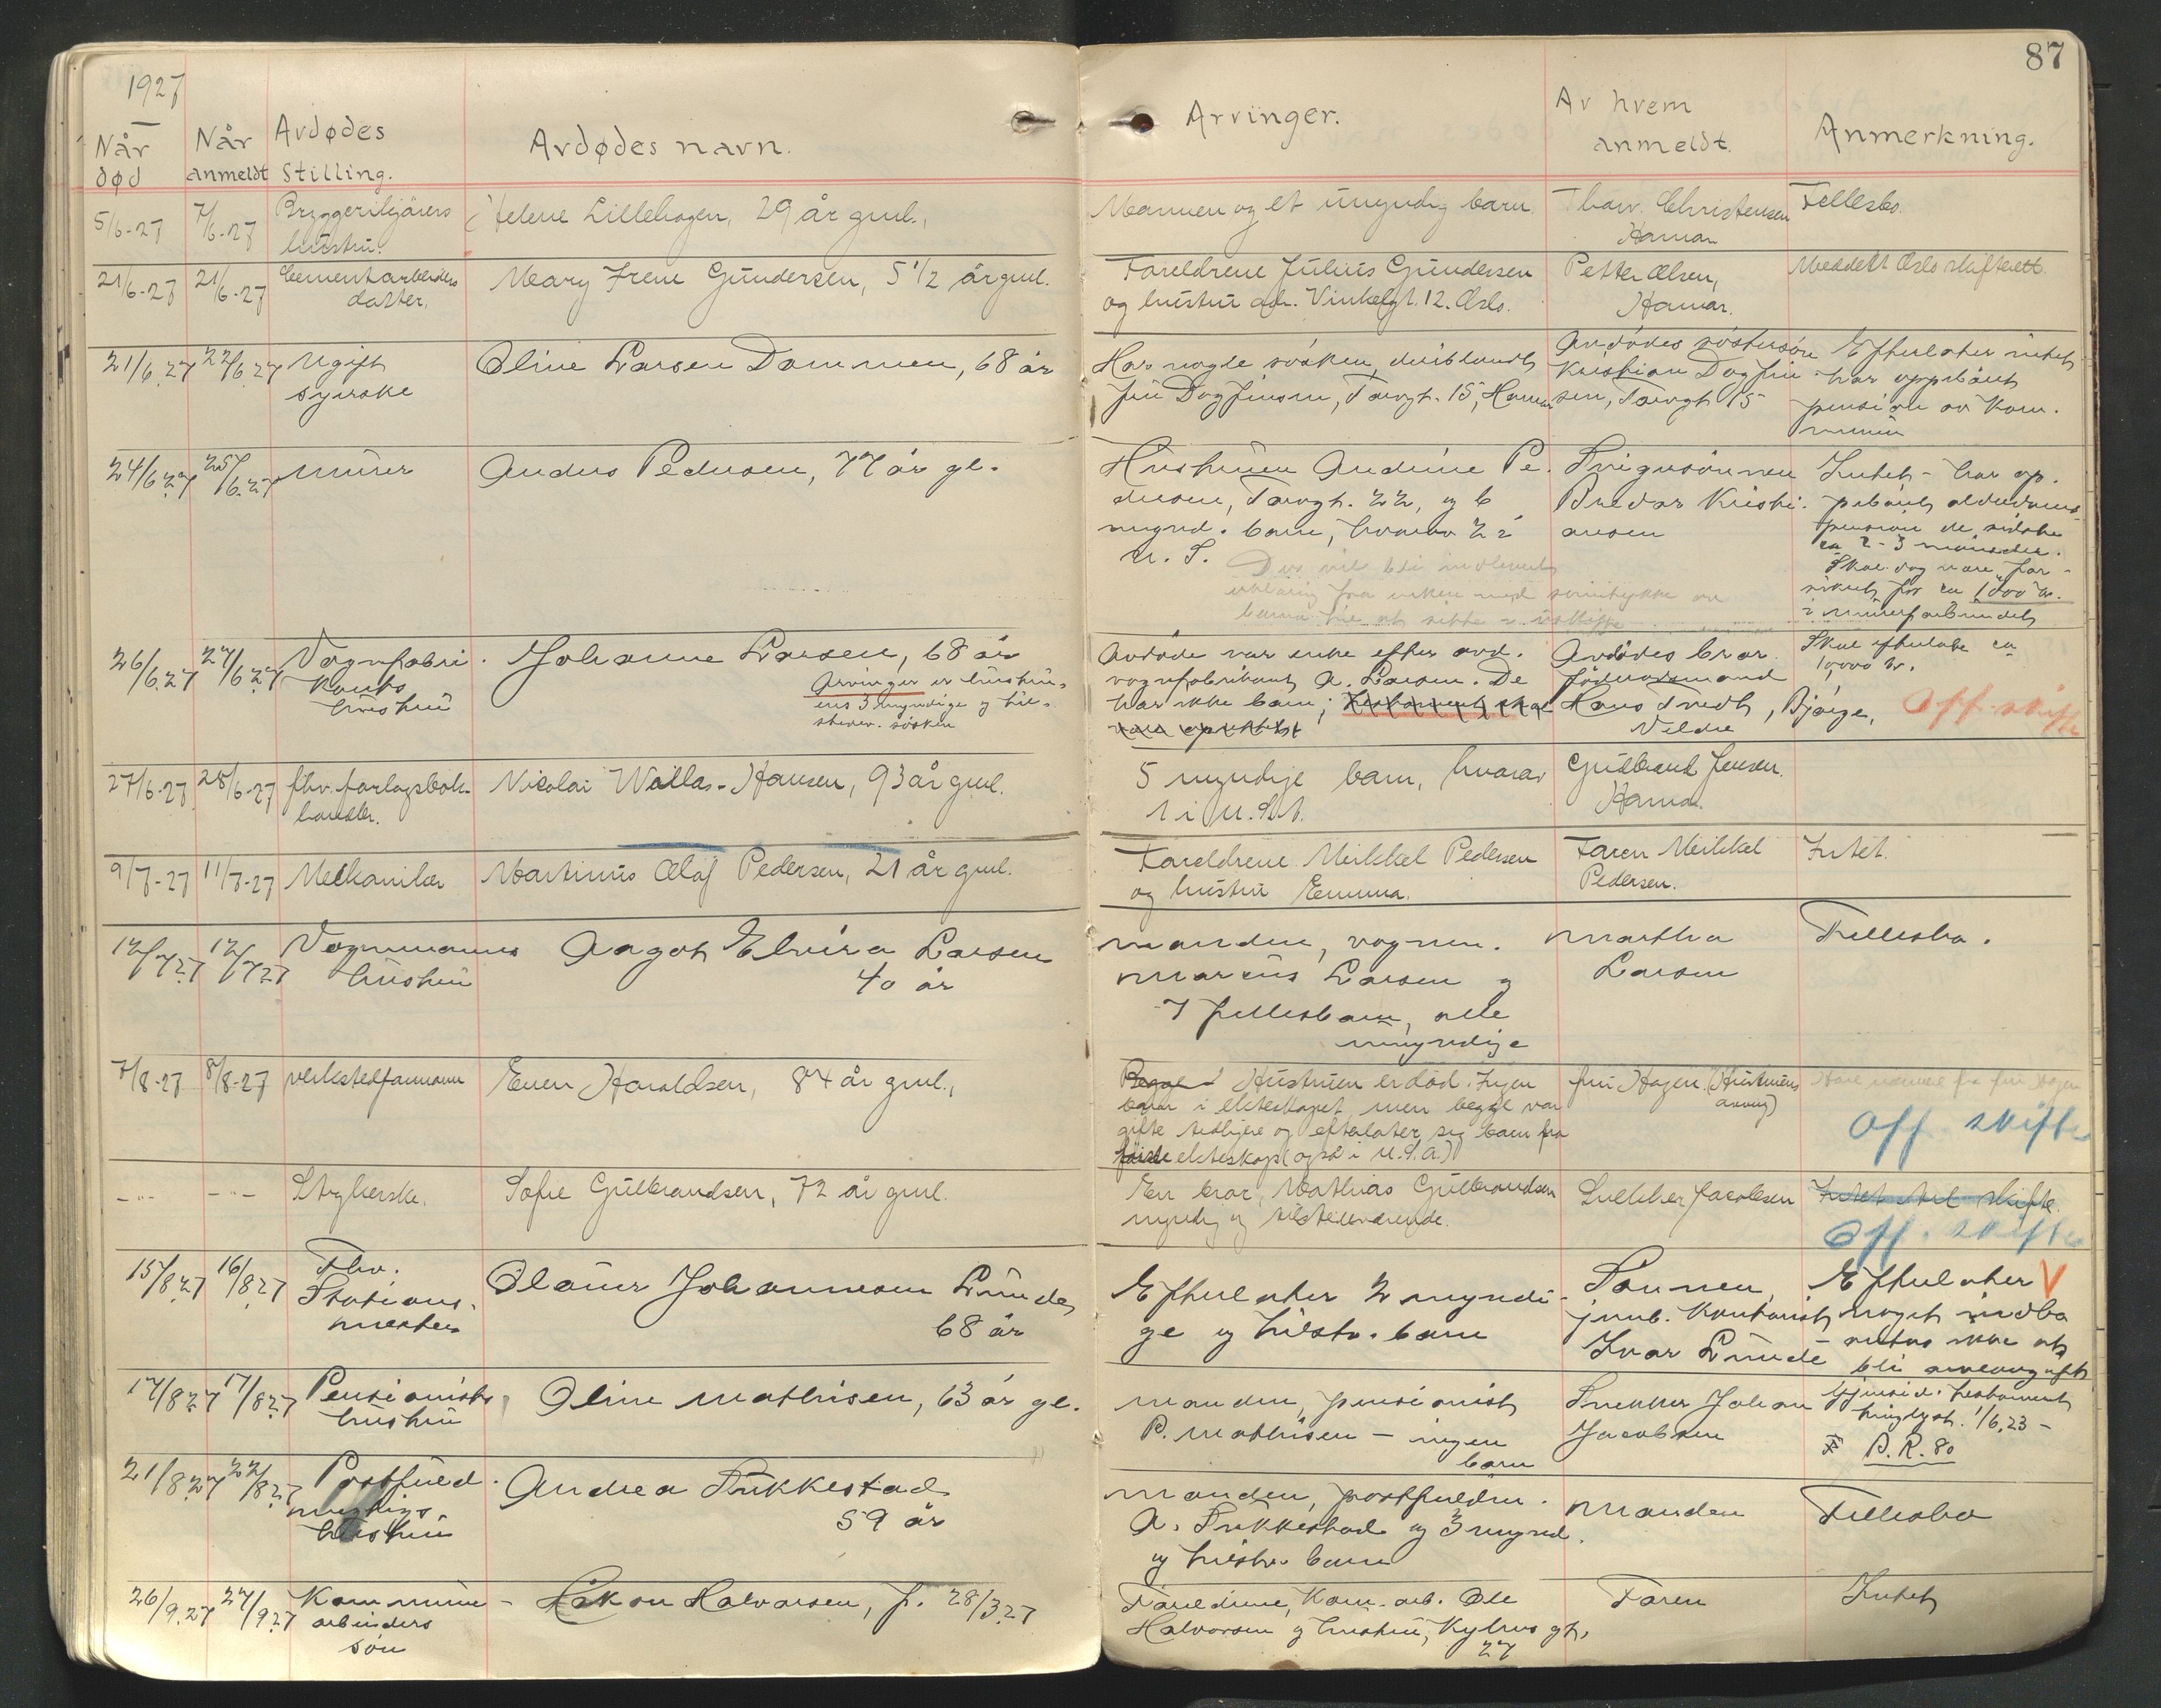 1927
87
Når
død
Når
anmeldt
Avdødes
stilling.
Avdødes navn.
Arvinger.
Av hvem
anmeldt.
Anmerkning.
5/6-27
7/6-27
Bryggerikjørers
hustru.
Helene Lillehagen, 29 år gml.,
Mannen og et umyndig barn.
Thorv. Christensen
Hamar
Fellesbo.
21/6-27
21/6-27
Cementarbeiders
datter.
Mary Irene Gundersen, 5 1/2 år gml.
Foreldrene Julius Gundersen
og hustru adr. Vinkelgt. 12. Oslo.
Petter Olsen,
Hamar.
Meddelt Oslo skifterett.
21/6.27
22/6.27
Ugift
syerske
Oline Larsen Dammen, 68 år
Har nogle søsken, deriblandt
fru Dagfinsen, Torvgt. 15, Hamar
Avdødes søstersøn
Kristian Dagfin
sen, Torvgt 15
Efterlater intet
har oppebåret
pension av kom.
munen
24/6.27
25/6.27
murer
Anders Pedersen, 77 år gl.
Hustruen Andrine Pe.
dersen, Torvgt. 22, og 6
mynd. barn, hvorav 2 i
U.S.
Der vil bli innlevert
erklæring fra enken med samtykke av
barna
Svigersønnen
Kristi.
ansen
Intet - har op.
pebåret alderdoms
pension de sidste
ca 2-3 måneder.
Skal dog være for-
sikret for ca 1000 kr.
i murerforbundet
26/6.27
27/6.27
Vognfabri.
kants
hustru
Johanne Larsen, 68 år
Arvinger er hustru.
ens 3 myndige og til-
stedev. søsken
Avdøde var enke efter avd.
vognfabrikant A. Larsen. De
har ikke barn; testament skal
være oprettet
Avdødes bror
Hans Tvedt, Bjørge,
Veldre
Skal efterlate ca
10000 kr.
Off. skifte
27/6-27
28/6-27
fhv. forlagsbok-
handler.
Nicolai Wallas-Hansen, 93 år gml.
5 myndige barn, hvorav
1 i U.S.A.
Gudbrand Jensen.
Hamar.
9/7-27
11/7-27
Mekaniker
Martinus Olaf Pedersen, 21 år gml.
Foreldrene Mikkel Pedersen
og hustru Emma.
Faren Mikkel
Pedersen.
Intet.
12/7.27
12/7.27
Vognmanns
hustru
Aagot Elvira Larsen
40 år
Manden, vognm.
Marius Larsen og
7 fellesbarn, alle
umyndige
Martha
Larsen
Fellesbo.
7/8-27
8/8-27
verkstedformann
Even Haraldsen, 84 år gml.,
Begge Hustruen er død. Ingen
barn i ekteskapet, men begge var
gifte tidligere og efterlater sig barn fra
første ekteskap (også i U.S.A.)
fru Hagen. (Hustruens
arving)
fra fru Hagen
Off. skifte
-"-
-"-
Strykerske.
Sofie Gulbrandsen, 72 år gml.
En bror, Mathias Gulbrandsen
myndig og tilstedeværende.
Snekker Jacobsen
Intet skifte.
Off. skifte
15/8.27
16/8.27
Fhv.
Stations.
mester
Olaus Johannesen Lunde,
68 år
Efterlater 2 myndi-
ge og tilstv. barn
Sønnen,
jernb. kontorist
Ivar Lunde
Efterlater V
noget indbo
antas ikke at
bli arveavgift
17/8.27
17/8.27
Pensionists
hustru
Oline Mathisen, 63 år gl.
Manden, pensionist
P. Mathisen - ingen
barn
Snekker Johan
Jacobsen
Gjensid. testament
tinglyst. 1/6.23 -
B.R. 80
21/8.27
22/8.27
Postfuld.
mektigs
hustru
Andrea Frikkestad
59 år
Manden, postfuldm.
A. Frikkestad og 3 mynd.
og tilstv. barn
Manden
Fellesbo
26/9.27
27/9.27
Kommune-
arbeiders
søn
Håkon Halvorsen, f. 28/3.27
Foreldrene, Kom. arb. Ole
Halvorsen og hustru, Kyhus gt.
27
Faren
Intet